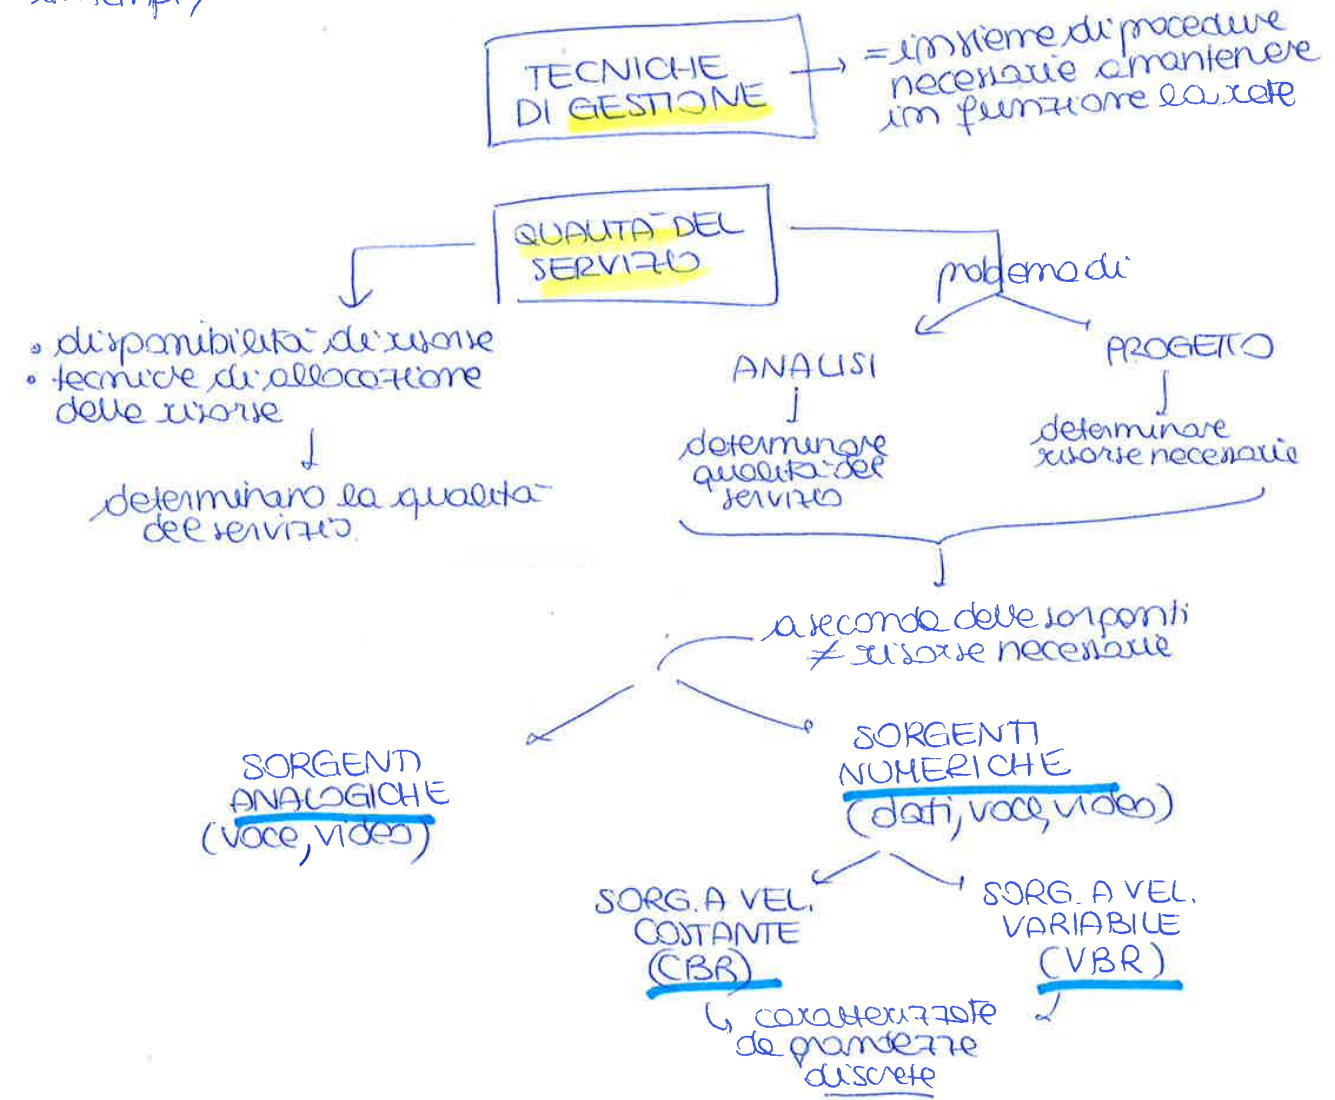 TECNICHE
DI GESTIONE
= insieme di procedure
necessarie a mantenere
in funzione la rete
QUALITÀ DEL
SERVIZIO
• disponibilità di risorse
• tecniche di allocazione
delle risorse
determinano la qualità
del servizio
problema di
ANALISI
determinare
qualità del
servizio
PROGETTO
determinare
risorse necessarie
a seconda delle sorgenti
≠ risorse necessarie
SORGENTI
ANALOGICHE
(voce, video)
SORGENTI
NUMERICHE
(dati, voce, video)
SORG. A VEL.
COSTANTE
(CBR)
SORG. A VEL.
VARIABILE
(VBR)
caratterizzate
da grandezze
discrete